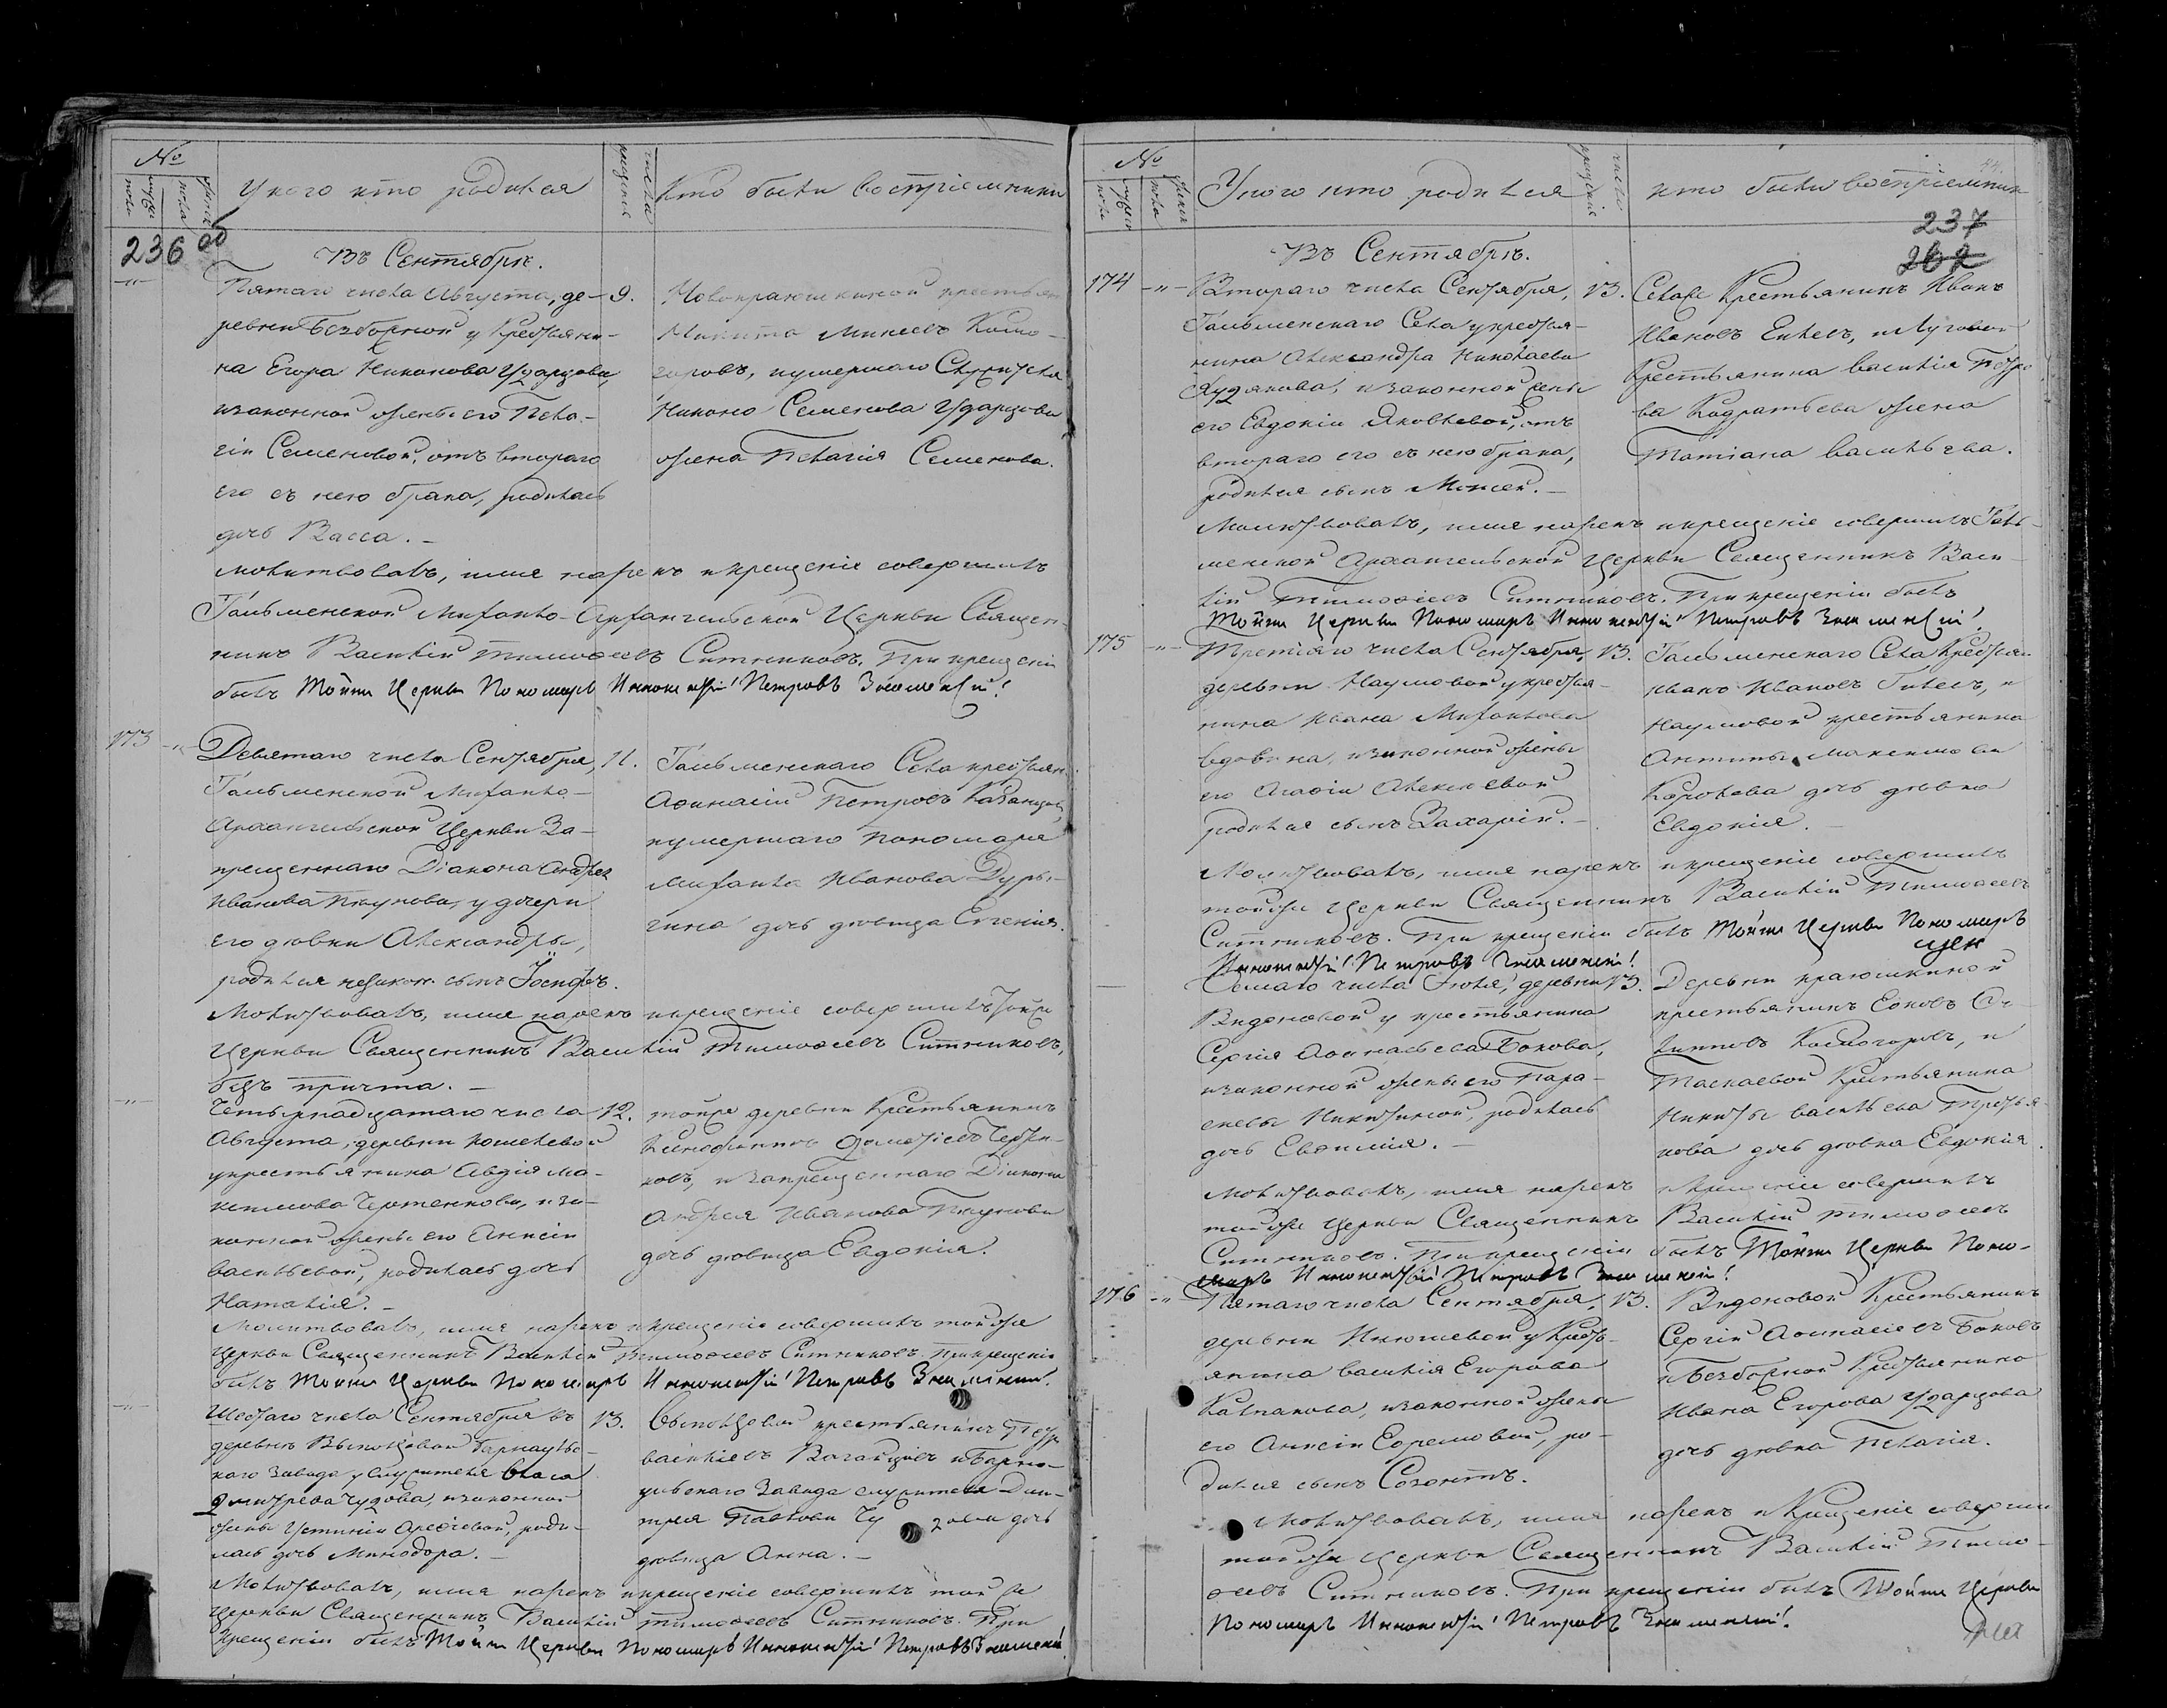 №
мужеска пола
женска пола
У кого кто родился
число крещенія
Кто были воспріемники
236 об
Въ Сентябрѣ.
-"-
Пятаго числа Августа, де- 9.
ревни Безборной у Крестьяни-
на Егора Никонова Ударцова,
и законной жены его Пела-
гіи Семеновой, отъ втораго
его съ нею брака, родилась
дочь Васса. -
Новокраюшкиной крестьян
Никита Минеевъ Космо-
горовъ, и умершаго Служителя
Никона Семенова Ударцова
жена Пелагія Семенова.
Молитвовалъ, имя нарекъ и крещеніе совершилъ
Тальменской Михаило-Архангельской Церкви Священ-
никъ Василій Тимоѳеевъ Ситниковъ. При крещеніи
былъ Тойже Церкви Пономарь Иннокентій Петровъ Знаменскій!
173 -"-
Девятаго числа Сентября, 11.
Тальменской Михаило-
Архангельской Церкви За-
прещеннаго Діакона Андрея
Иванова Пѣунова, у дочери
его дѣвки Александры,
родился незакон. сынъ Іосифъ.
Тальменскаго Села крестьян.
Аѳанасій Петровъ Казанцовъ,
и умершаго Пономаря
Михаила Иванова Дуры-
гина дочь дѣвица Евгенія.
Молитвовалъ, имя нарекъ и крещеніе совершилъ тойже
Церкви Священникъ Василій Тимоѳеевъ Ситниковъ,
безъ причта. -
-"-
Четырнадцатаго числа 12.
Августа, деревни Кошелевой
у крестьянина Авдія Ма-
ксимова Чертенкова, и за-
конной жены его Анисіи
Васильевой, родилась дочь
Наталія. -
тойже деревни Крестьянинъ
Ксенофонтъ
ковъ, и Запрещеннаго Діакона
Андрея Иванова Пѣунова
дочь дѣвица Евдокія.
Молитвовалъ, имя нарекъ и крещеніе совершилъ тойже
Церкви Священникъ Василій Тимоѳеевъ Ситниковъ. При крещеніи
былъ Тойже Церкви Пономарь Иннокентій Петровъ Знаменскій!
-"-
Шестаго числа Сентября въ 13.
деревнѣ Выползовой Барнауль-
скаго Завода у Служителя Власа
Дмитрева Чудова, и законной
жены Устиніи Ареѳіевой, роди-
лась дочь Минодора. -
Выползовой крестьянинъ Петръ
Васильевъ Ваганцовъ и Барна-
ульскаго Завода служителя Дми-
трія Павлова Чудова дочь
дѣвица Анна. -
Молитвовалъ, имя нарекъ и крещеніе совершилъ той же
Церкви Священникъ Василій Тимоѳеевъ Ситниковъ. При
крещеніи былъ Тойже Церкви Пономарь Иннокентій Петровъ Знаменскій!
№
мужеска пола
женска пола
У кого кто родился
число крещенія
кто были воспріемники
237
262
Въ Сентябрѣ.
174 -"-
Втораго числа Сентября, 13.
Тальменскаго Села у крестья-
нина Александра Николаева
Худякова, и законной жены
его Евдокіи Яковлевой, отъ
втораго его съ нею брака,
родился сынъ Моисей. -
Села Крестьянинъ Иванъ
Ивановъ и Луговой
Крестьянина Василія Петро
ва Кодратьева жена
Татіана Васильева.
Молитвовалъ, имя нарекъ и крещеніе совершилъ Таль-
менской Архангельской Церкви Священникъ Васи-
лій Тимоѳеевъ Ситниковъ. При крещеніи былъ
Тойже Церкви Пономарь Иннокентій Петровъ Знаменскій!
175 -"-
Третіяго числа Сентября, 13.
деревни Наумовой у крестья-
нина Ивана Михаилова
Вдовина, и законной жены
его Агаѳіи Алексѣевой
родился сынъ Захарій. -
Тальменскаго Села Крестьян
Иванъ Ивановъ и
Наумовой крестьянина
Антипы Максимова
Королева дочь дѣвка
Евдокія. -
Молитвовалъ, имя нарекъ и крещеніе совершилъ
тойже Церкви Священникъ Василій Тимоѳеевъ
Ситниковъ. При крещеніи былъ Тойже Церкви Пономарь
Иннокентій Петровъ Знаменскій!
Седмаго числа Іюля, деревни 13.
Видоновой у крестьянина
Сергія Аѳанасьева Бокова,
и законной жены его Пара-
скевы Никитиной, родилась
дочь Евѳимія. -
Деревни Краюшкиной
крестьянинъ
Космогоровъ, и
Таскаевой Крестьянина
Никиты Васильева Третья-
кова дочь дѣвка Евдокія.
Молитвовалъ, имя нарекъ и крещеніе совершилъ
тойже Церкви Священникъ Василій Тимоѳеевъ
Ситниковъ. При крещеніи былъ Тойже Церкви Поно-
марь Иннокентій Петровъ Знаменскій!
176 -"-
Пятаго числа Сентября, 13.
деревни Инюшевой у Кресть-
янина Василія Егорова
Калпакова, и законной жены
его Анисіи Ефремовой, ро-
дился сынъ Созонтъ.
Видоновой Крестьянинъ
Сергій Аѳанасіевъ Боковъ
и Безборной Крестьянина
Ивана Егорова Ударцова
дочь дѣвка Пелагія.
Молитвовалъ, имя нарекъ и Крещеніе соверши
тойже Церкви Священникъ Василій Тимо-
ѳеевъ Ситниковъ. При крещеніи былъ Тойже Церкви
Пономарь Иннокентій Петровъ Знаменскій!